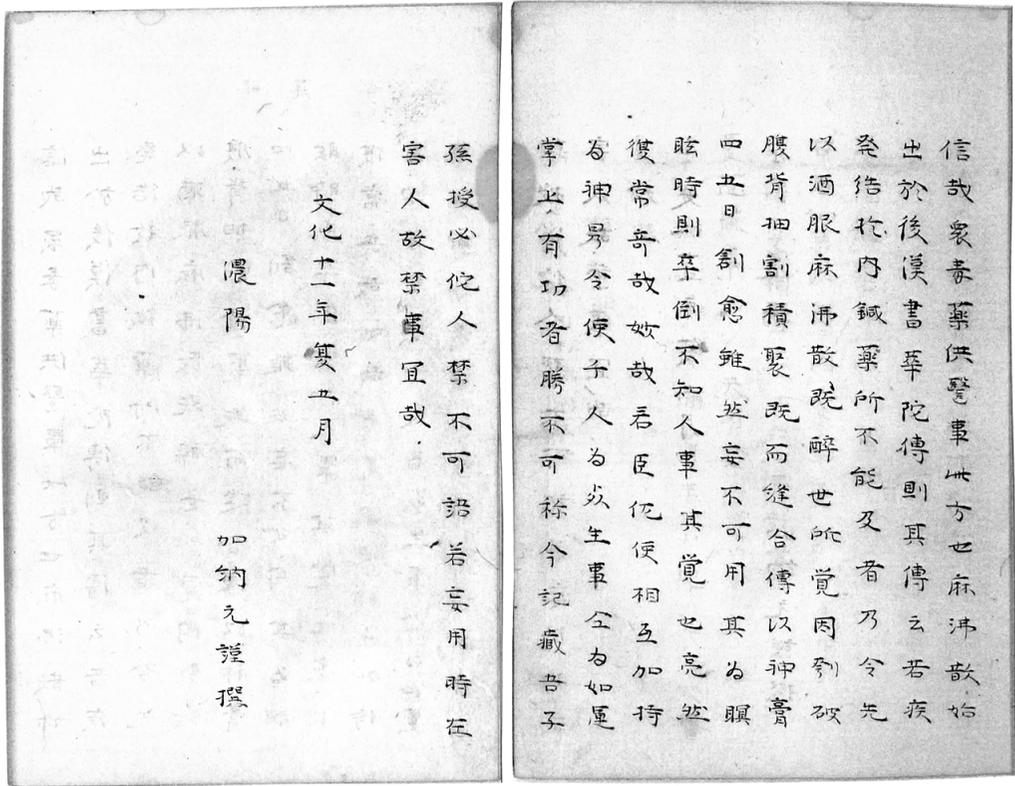 信哉衆毒薬供毉事此方也麻沸散始
出於後漢書華陀傳則其傳云若疾
発結於内鍼薬所不能及者乃令先
以酒服麻沸散既醉世所覚因刳破
腹背抽割積聚既而縫合傳以神膏
四五日創愈雖然妄不可用其為瞑
眩時則卒倒不知人事其覚也亮然
復常奇哉妙哉君臣佐使相互加持
為神男令使子人為炎生事仝為如運
掌上有功者勝不可称今記藏吾子
孫授必佗人禁不可語若妄用時在
害人故禁事冝哉
文化十一年夏五月
濃陽 加納元謹撰